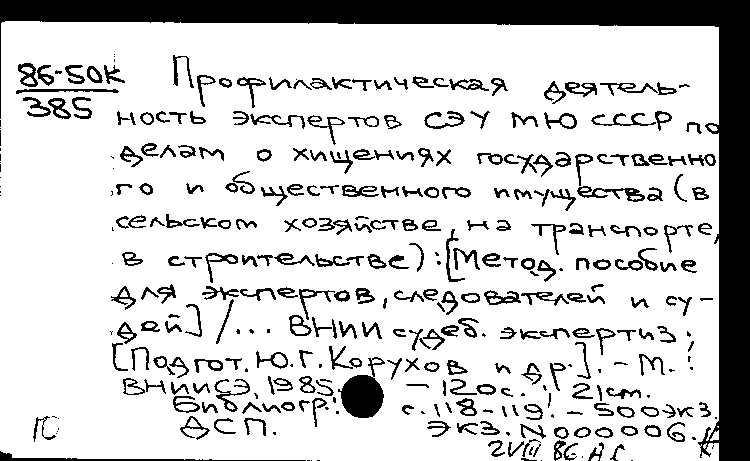 86-50К
385
Профилактическая деятель-
ность экспертов СЭУ МЮ СССР по
делам о хищениях государственно
го и общественного имущества (в
сельском хозяйстве, на транспорте,
в строительстве): [Метод. пособие
для экспертов, следователей и су-
дей] /... ВНИИ судеб. экспертиз;
[Подгот. Ю.Г. Корухов и др.]. - М.:
ВНИИСЭ, 1985. - 120с.; 21см.
Библиогр.: с.118-119. - 500экз.
ДСП. Экз. N000006.
2VIII 86.